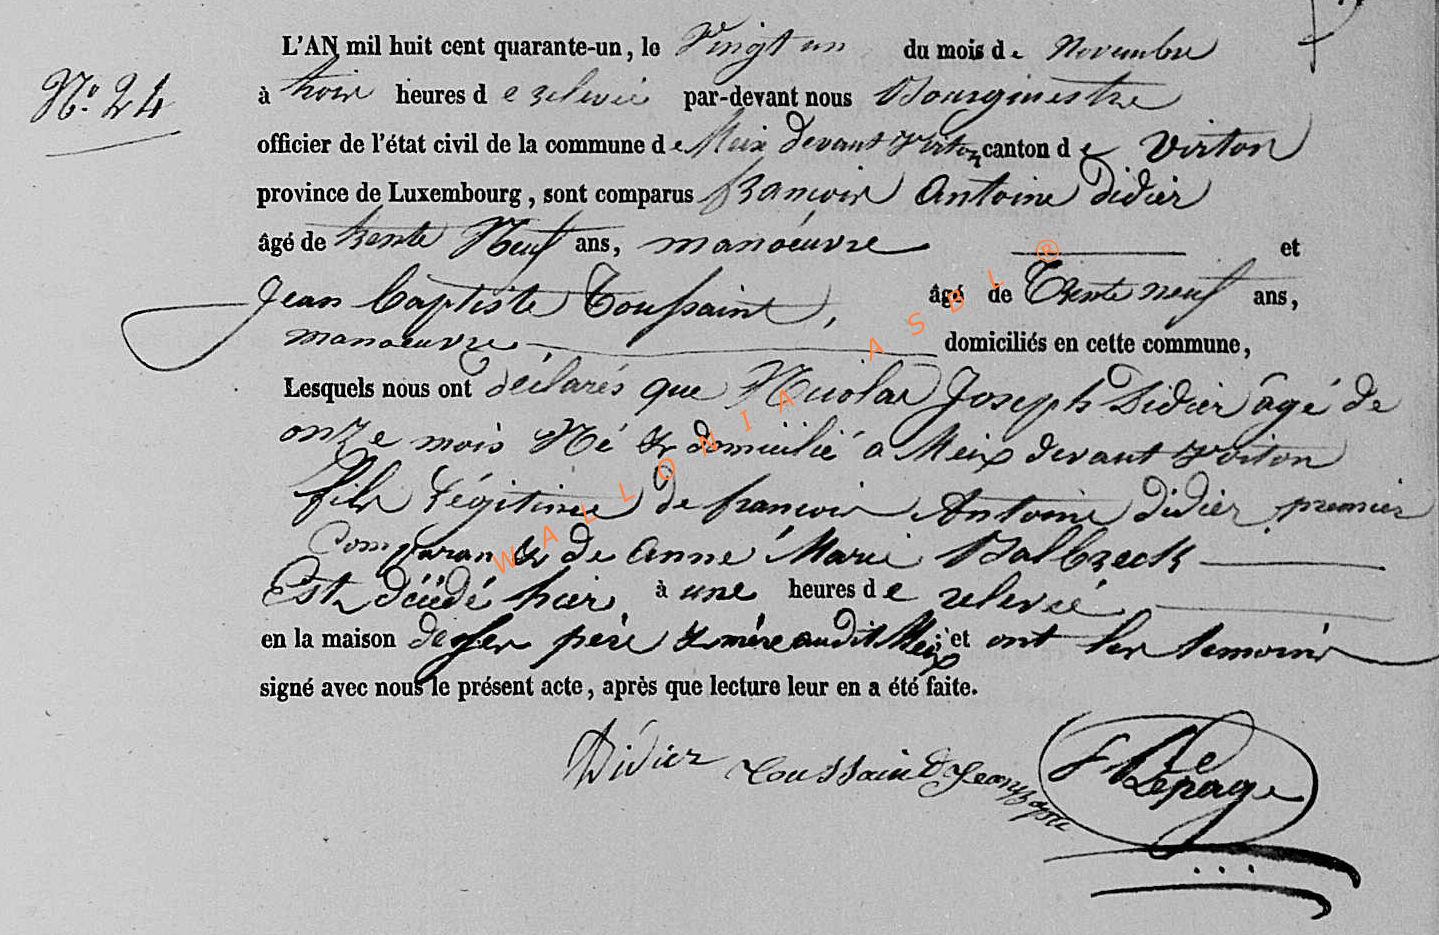 L'AN mil huit cent quarante-un, le Vingt un du mois de Novembre
N.° 24
à trois heures de relevée par-devant nous Bourgmestre
officier de l'état civil de la commune de Meix devant Virton canton de Virton
province de Luxembourg, sont comparus francois Antoine Didier
âgé de trente Neuf ans, manoeuvre et
Jean baptiste Toussaint, âgé de Trente neuf ans,
manoeuvre domiciliés en cette commune,
Lesquels nous ont déclarés que Nicolas Joseph Didier âgé de
onze mois Né & domicilié a Meix devant Virton
fils Légitime de francois Antoine Didier premier
Comparant & de Anne Marie Balbreck
Est décédé hier à une heures de relevée
en la maison de ses père & mère audit Meix; et ont les temoins
signé avec nous le présent acte, après que lecture leur en a été faite.
Didier Toussaint Jean bapte f Lepage
WALLONIA ASBL ®